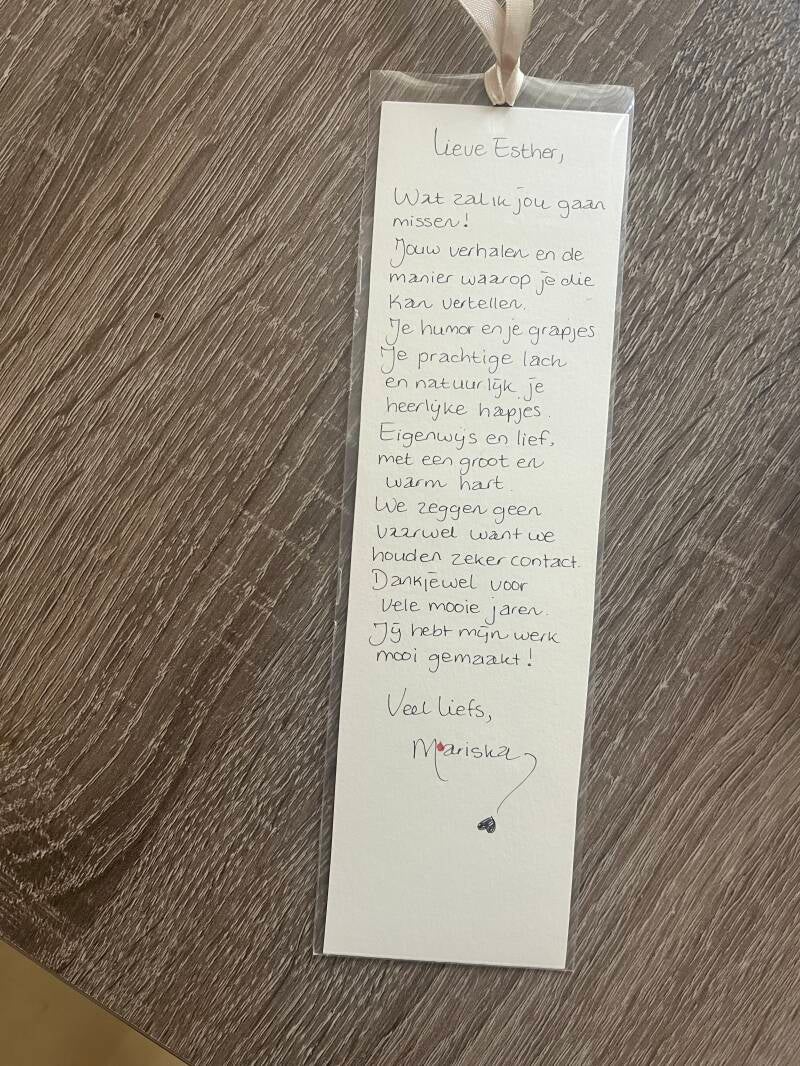 Lieve Esther,
Wat zal ik jou gaan
missen!
Jouw verhalen en de
manier waarop je die
kan vertellen.
Je humor en je grapjes
Je prachtige lach
en natuurlijk je
heerlijke hapjes.
Eigenwijs en lief,
met een groot en
warm hart.
We zeggen geen
vaarwel want we
houden zeker contact.
Dankjewel voor
vele mooie jaren.
Jij hebt mijn werk
mooi gemaakt!
Veel liefs,
Mariska